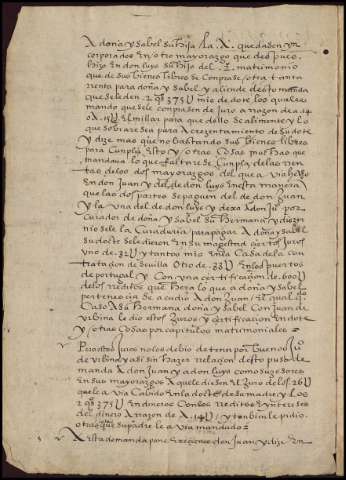 A doña ysabel su hija La A. quedasen yn
corporados en otro mayorazgo que despues
hizo en don luys su hijo del 2º matrimonio
que de sus bienes libres se comprase otra tanta
renta para doña ysabel y aliende desto manda
que se le den 2 qºs 375U mrs de dote los quales
mando que se comprasen de juro a razon de a 14
U el millar para que dello se alimente y lo
que sobrare sea para acrezentamiento de su dote
y dize mas que no bastando sus bienes libres
para cunplir esto y otras cosas pias que
mandava lo que faltare se cunpla de las ren
tas de los dos mayorazgos del que avia hecho
en don Juan y del de don luys en esta manera
que las dos partes se paguen del de don Juan
y la una del de don luys y dexo A don Juº por
curador de doña ysabel su hermana y dizien
se le la curaduria para pagar A doña ysabel
su dote se le dieron en su magestad çiertos juros
uno de 32U y tantos mrs en la Casa de la con
tratacion de sevilla Otro de 33U en los puertos
de portugal y Con una certificaçion de 600U
de los reditos que hera lo que a doña ysabel
perteneçia se acudio A don Juan el qual
Caso A su hermana doña ysabel Con Juan de
urbina le dio estos juros y certificaçion en dote
y otras Cosas por capitulos matrimoniales
Pero estos juros no les debio de tener por buenos Juº
de urbina y asi sin hazer relacion desto puso de
manda A don Juan y a don luys como suzesores
en sus mayorazgos A que le diesen el juro de los 26U
que le avia Cabido en la dote de su madre y los
2 qºs 375U en dineros Con los reditos e yntereses
del dinero A razon de A 14U y tanbien le pidio
otras que su padre le avia mandado
A esta demanda pone exepciones don Juan y dize en